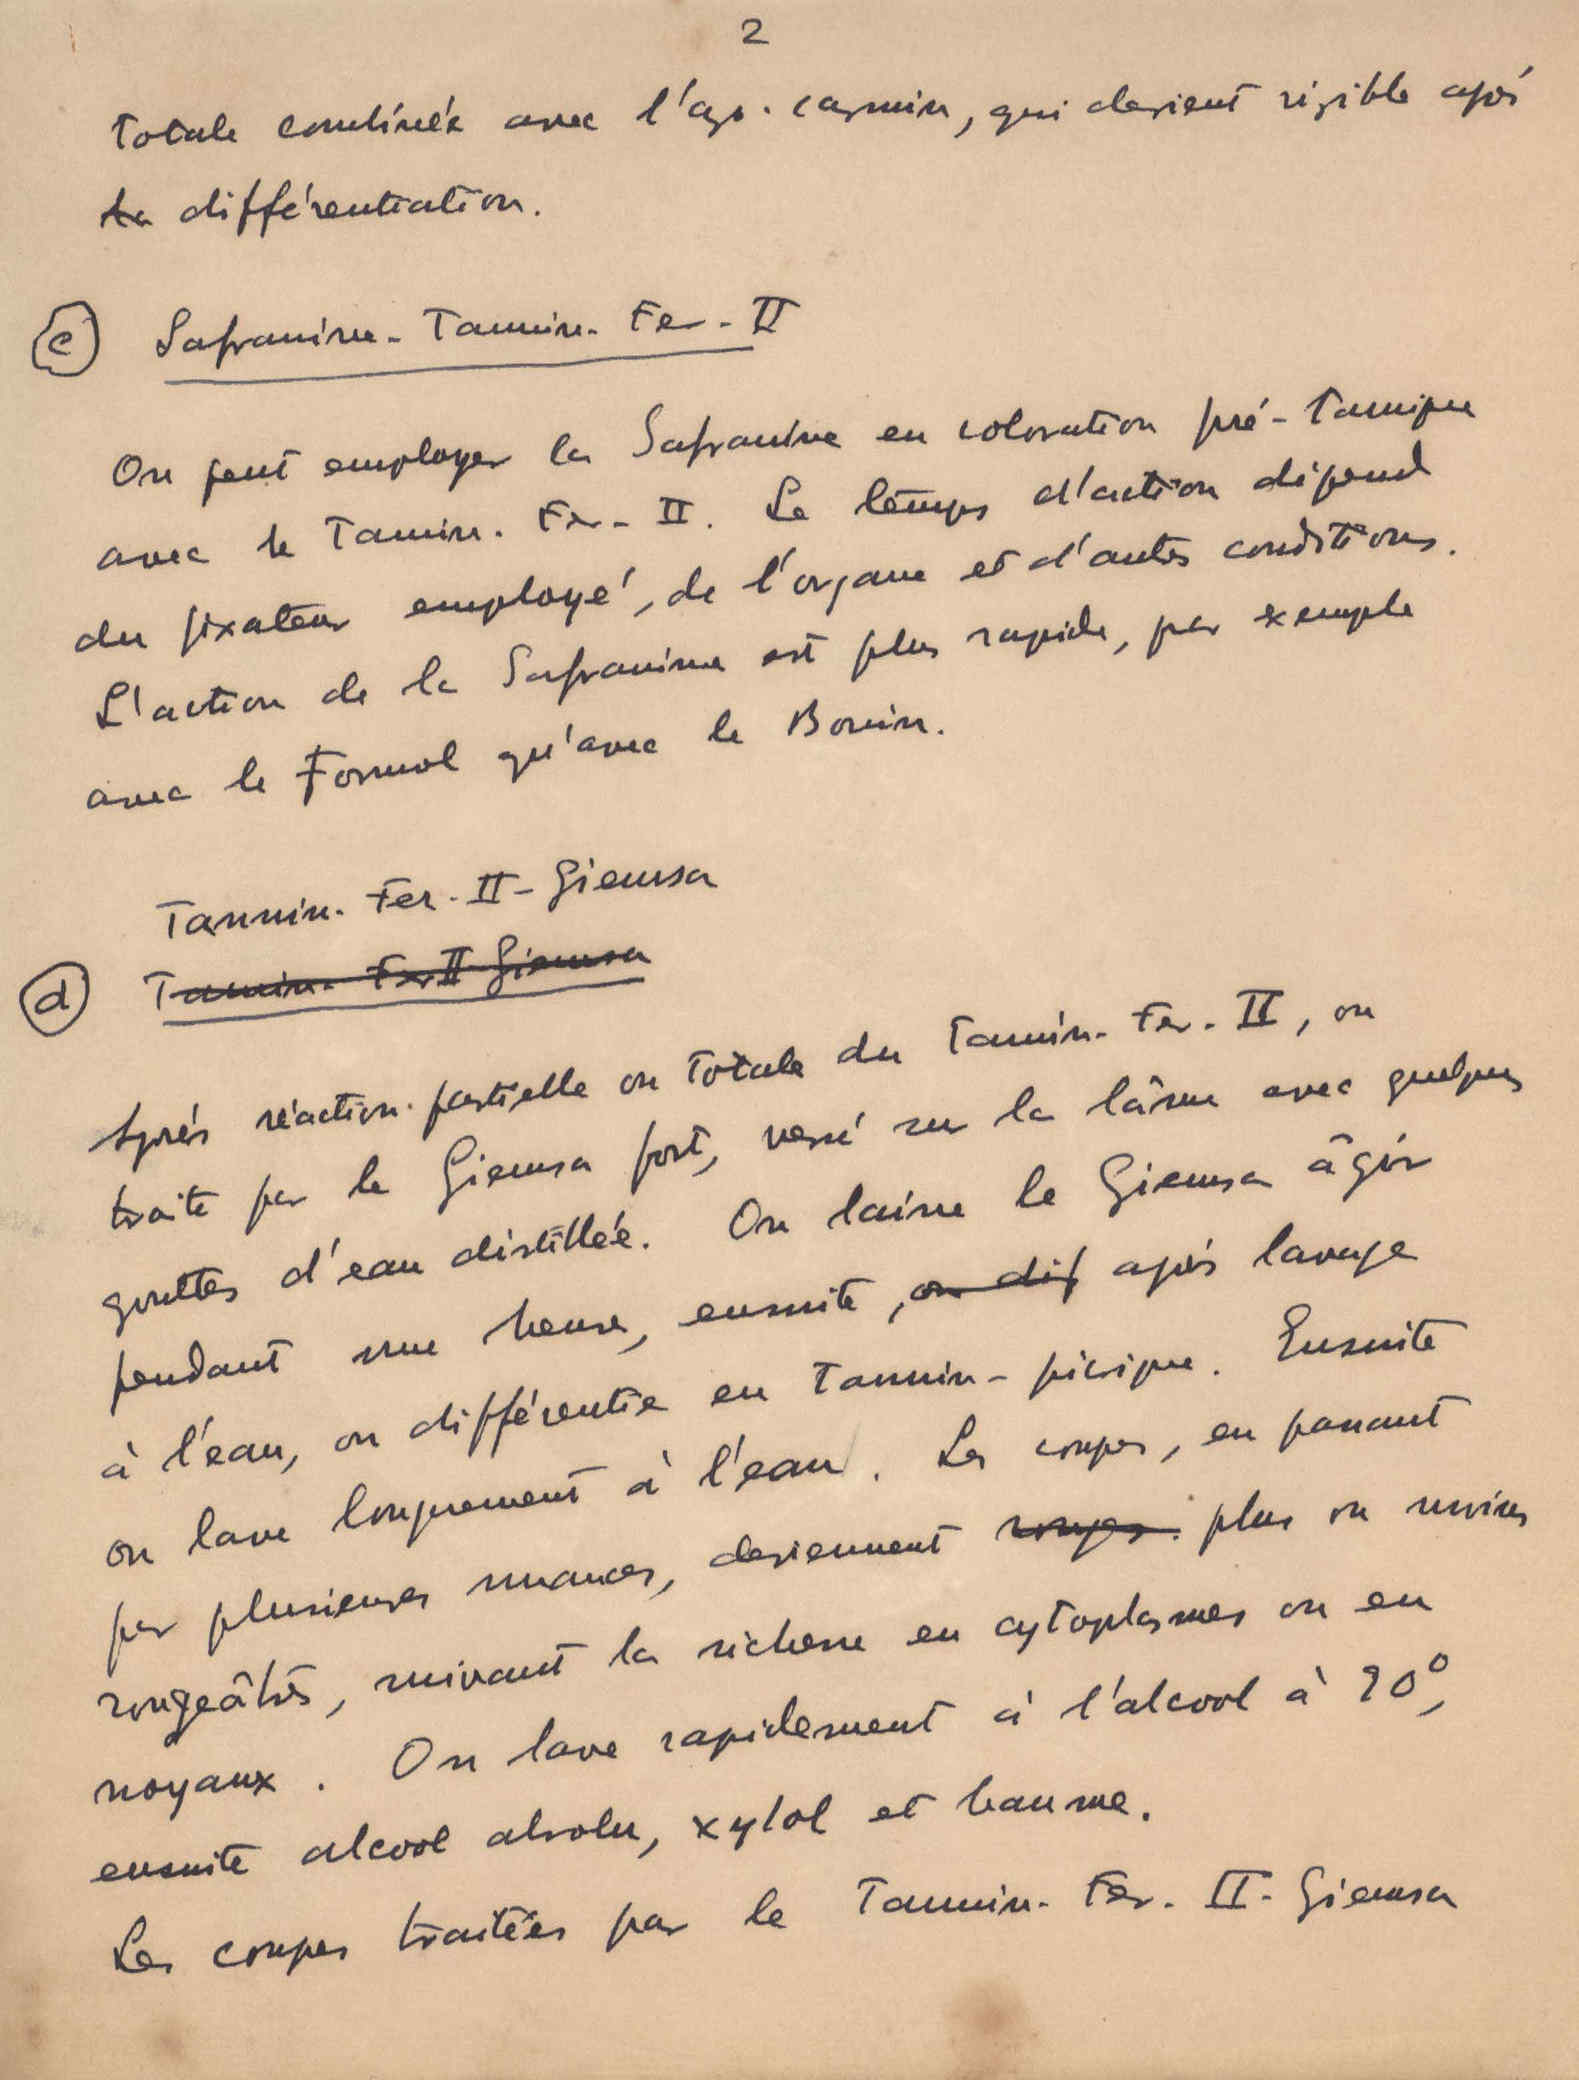 2
totale combinée avec l'azo-carmin, qui devient visible après
la différentiation.
c Safranine-Tannin-Fer-II
On peut employer la Safranine en coloration pré-tannique
avec le Tannin-Fer-II. Le temps d'action dépend
du fixateur employé, de l'organe et d'autres conditions.
L'action de la Safranine est plus rapide, par exemple
avec le Formol qu'avec le Bouin.
Tannin-Fer-II-Giemsa
d Tannin-Fer II-Giemsa
Après réaction partielle ou totale du Tannin-Fer-II, on
traite par le Giemsa fort, versé sur la lâme avec quelques
gouttes d'eau distillée. On laisse le Giemsa âgir
pendant une heure, ensuite, on dif après lavage
à l'eau, on différentie en Tannin-picrique. Ensuite
on lave longuement à l'eau. Les coupes, en passant
par plusieures nuances, deviennent rouges plus ou moins
rougeâtrês, suivant la richesse en cytoplasmes ou en
noyaux. On lave rapidement à l'alcool à 90°,
ensuite alcool absolu, xylol et baume.
Les coupes traitées par le Tannin-Fer-II-Giemsa